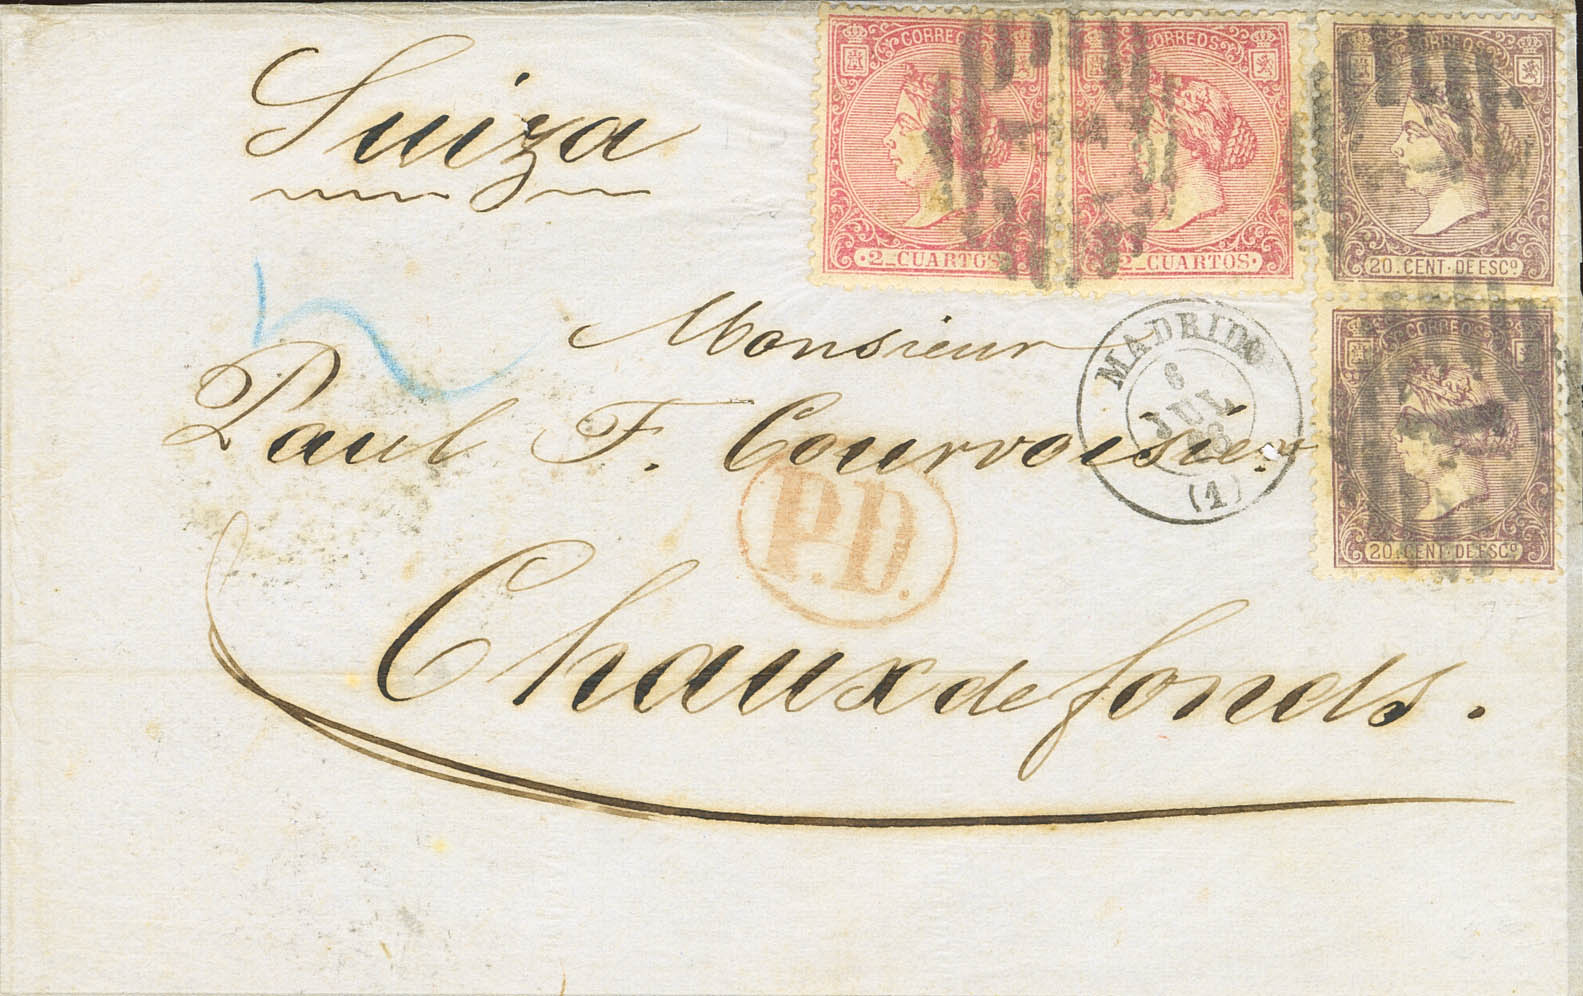 Suiza
CORREOS
2_CUARTOS
CORREOS
2_CUARTOS
CORREOS
20.CENT.DE ESCº
CORREOS
20.CENT.DE ESCº
Monsieur
MADRID
6
JUL
(1)
Paul F. Courvoisier
P.D.
Chaux de fonds.